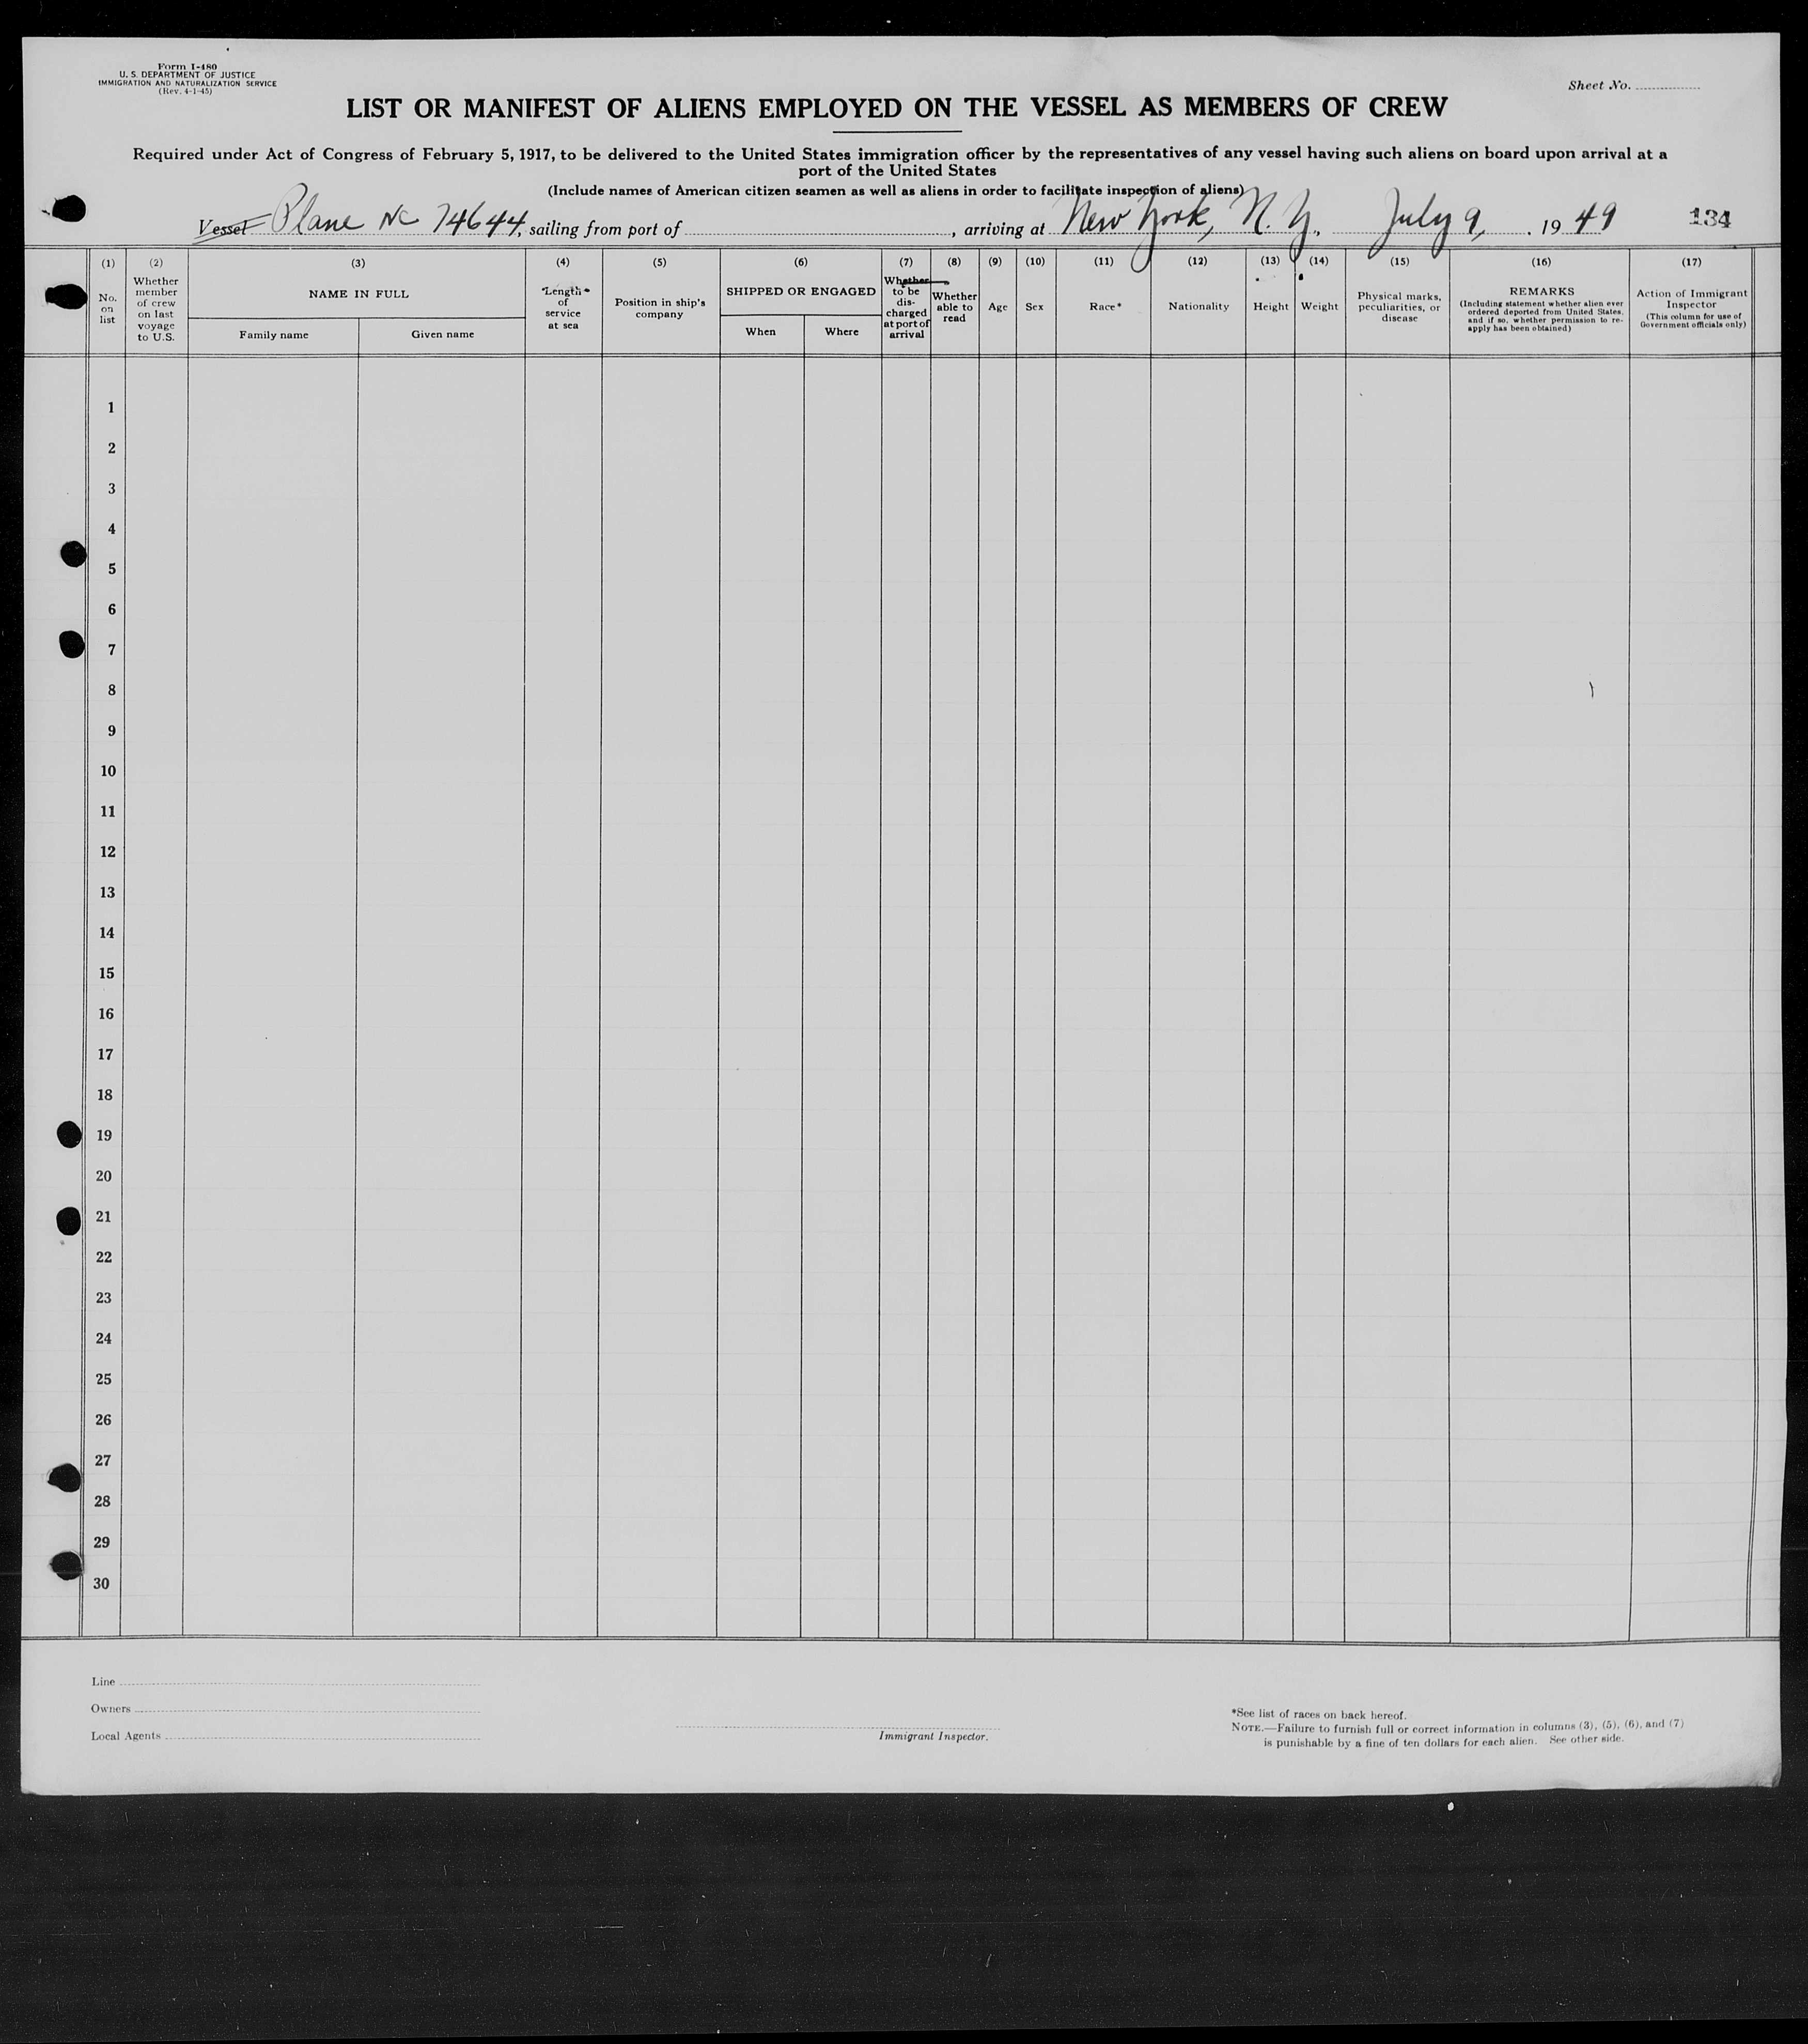 Form I-480
U. S. DEPARTMENT OF JUSTICE
IMMIGRATION AND NATURALIZATION SERVICE
(Rev. 4-1-45)
Sheet No.
LIST OR MANIFEST OF ALIENS EMPLOYED ON THE VESSEL AS MEMBERS OF CREW
Required under Act of Congress of February 5, 1917, to be delivered to the United States immigration officer by the representatives of any vessel having such aliens on board upon arrival at a
port of the United States
(Include names of American citizen seamen as well as aliens in order to facilitate inspection of aliens)
Vessel Plane NC 74644, sailing from port of , arriving at New York, N. Y., July 9, , 19 49 134
(1) (2) (3) (4) (5) (6) (7) (8) (9) (10) (11) (12) (13) (14) (15) (16) (17)
No.
on
list
Whether
member
of crew
on last
voyage
to U.S.
NAME IN FULL
Family name
Given name
Length
of
service
at sea
Position in ship's
company
SHIPPED OR ENGAGED
When
Where
Whether
to be
dis-
charged
at port of
arrival
Whether
able to
read
Age
Sex
Race*
Nationality
Height
Weight
Physical marks,
peculiarities, or
disease
REMARKS
(Including statement whether alien ever
ordered deported from United States,
and if so, whether permission to re-
apply has been obtained)
Action of Immigrant
Inspector
(This column for use of
Government officials only)
1
2
3
4
5
6
7
8
9
10
11
12
13
14
15
16
17
18
19
20
21
22
23
24
25
26
27
28
29
30
Line
Owners
Local Agents
Immigrant Inspector.
*See list of races on back hereof.
NOTE.—Failure to furnish full or correct information in columns (3), (5), (6), and (7)
is punishable by a fine of ten dollars for each alien. See other side.